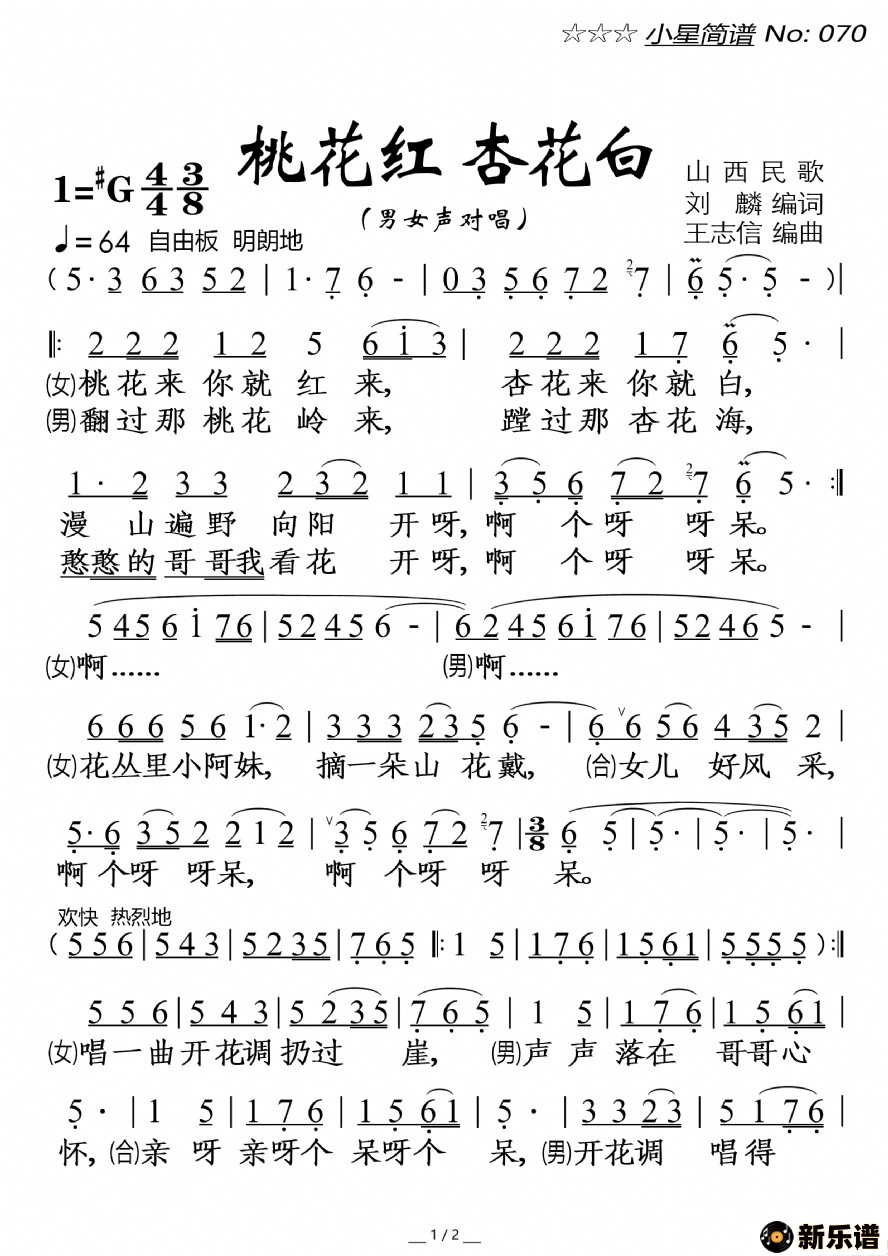 ☆☆☆ 小星简谱 No: 070
桃花红 杏花白
(男女声对唱)
1=#G 4/4 3/8
♩=64 自由板 明朗地
山西民歌
刘麟 编词
王志信 编曲
(5·3 63 52|1·7 6 -|03 56 72 2 7|6 5·5 -)|
‖: 2 22 12 5 6i3| 2 22 17 6 5·|
(女)桃花来你就红来, 杏花来你就白,
(男)翻过那桃花岭来, 蹚过那杏花海,
1·2 33 232 11|356 72 2 7 6 5·:‖
漫山遍野向阳开呀,啊个呀呀呆。
憨憨的哥哥我看花开呀,啊个呀呀呆。
5 456 i 76|52456 -|62456i76|52465 -|
(女)啊…… (男)啊……
6 66 56 1·2|333 235 6 -|6 ∨6 56 4 35 2|
(女)花丛里小阿妹, 摘一朵山花戴, (合)女儿好风采,
5·6 352 212|∨356 72 2 7|3/8 6 5|5·|5·|5·|
啊个呀呀呆, 啊个呀呀呆。
欢快 热烈地
(556|543|5235|765‖:1 5|176|1561|5555):‖
556|543|5235|765|1 5|176|1561|
(女)唱一曲开花调扔过崖, (男)声声落在哥哥心
5·|1 5|176|1561|5·|3323|5176|
怀,(合)亲呀亲呀个呆呀个呆,(男)开花调唱得
1 / 2
新乐谱